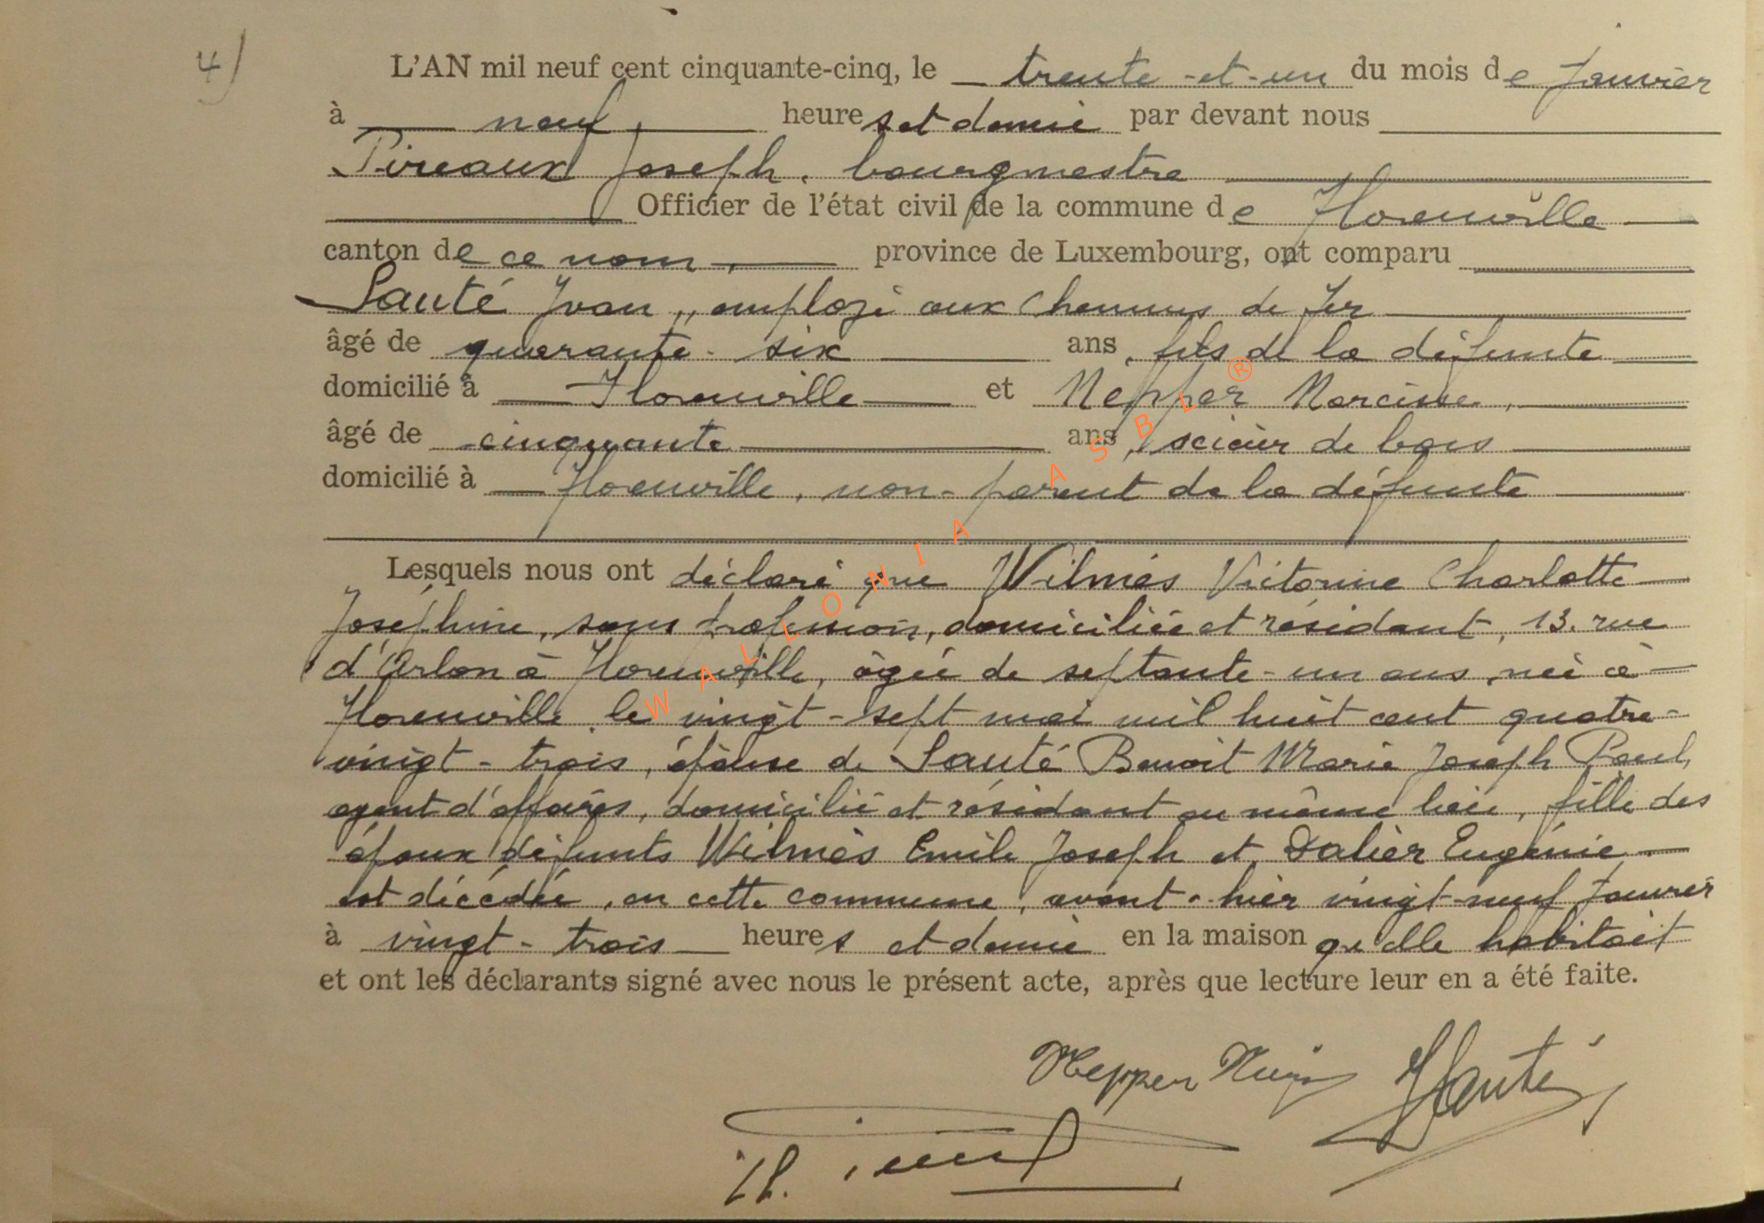 4)
L'AN mil neuf cent cinquante-cinq, le trente-et-un du mois de Janvier
à neuf heures et demie par devant nous
Pireaux Joseph, bourgmestre
Officier de l'état civil de la commune de Florenville
canton de ce nom, province de Luxembourg, ont comparu
Sauté Yvan, employé aux Chemins de Fer
âgé de quarante-six ans, fils de la défunte
domicilié à Florenville et Nepper Narcisse,
âgé de cinquante ans, scieur de bois
domicilié à Florenville, non-parent de la défunte
Lesquels nous ont déclaré que Wilmès Victorine Charlotte
Joséphine, sans profession, domiciliée et résidant, 13. rue
d'Arlon à Florenville, âgée de septante-un ans, née à
Florenville le vingt-sept mai mil huit cent quatre-
vingt-trois, épouse de Sauté Benoit Marie Joseph Paul,
agent d'affaires, domicilié et résidant au même lieu, fille des
époux défunts Wilmès Emile Joseph et Dalièr Eugénie
est décédée, en cette commune, avant-hier vingt-neuf Janvier
à vingt-trois heures et demie en la maison qu'elle habitait
et ont les déclarants signé avec nous le présent acte, après que lecture leur en a été faite.
Nepper YSauté
WALLONIA ASBL ®